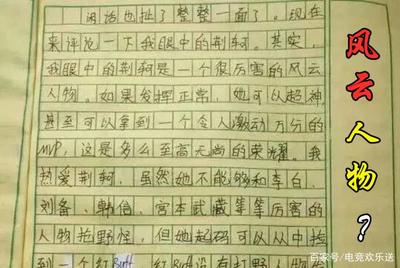 闲话也扯了整整一面了。现在
来评论一下我眼中的荆轲。其实，
我眼中的荆轲是一个很厉害的风云
人物。如果发挥正常，她可以超神，
甚至可以拿到一个令人激动万分的
MVP，这是多么至高无尚的荣耀。我
热爱荆轲，虽然她不能够和李白，
刘备，韩信，宫本武藏等等厉害的
人物抢野怪。但她起码可以从中抢
到一个红Buff，红Buff没有打野人物
风云人物？
百家号/电竞欢乐送